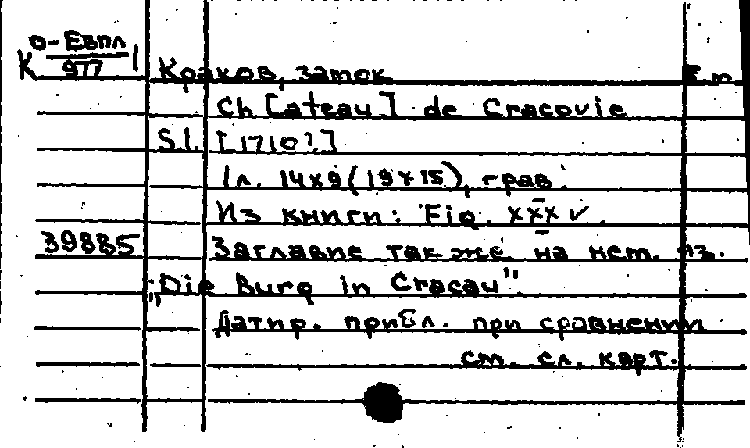 о-Евпл
К 977 1
Краков, замок
Ch[ateau] de Cracovie
S.l. [1710?]
1л. 14х9(19х15), грав.
Из книги: Fig. XXXV.
39885 Заглавие также на нем. яз.
"Die Burg in Cracau".
Датир. прибл. при сравнении
см. сл. карт.